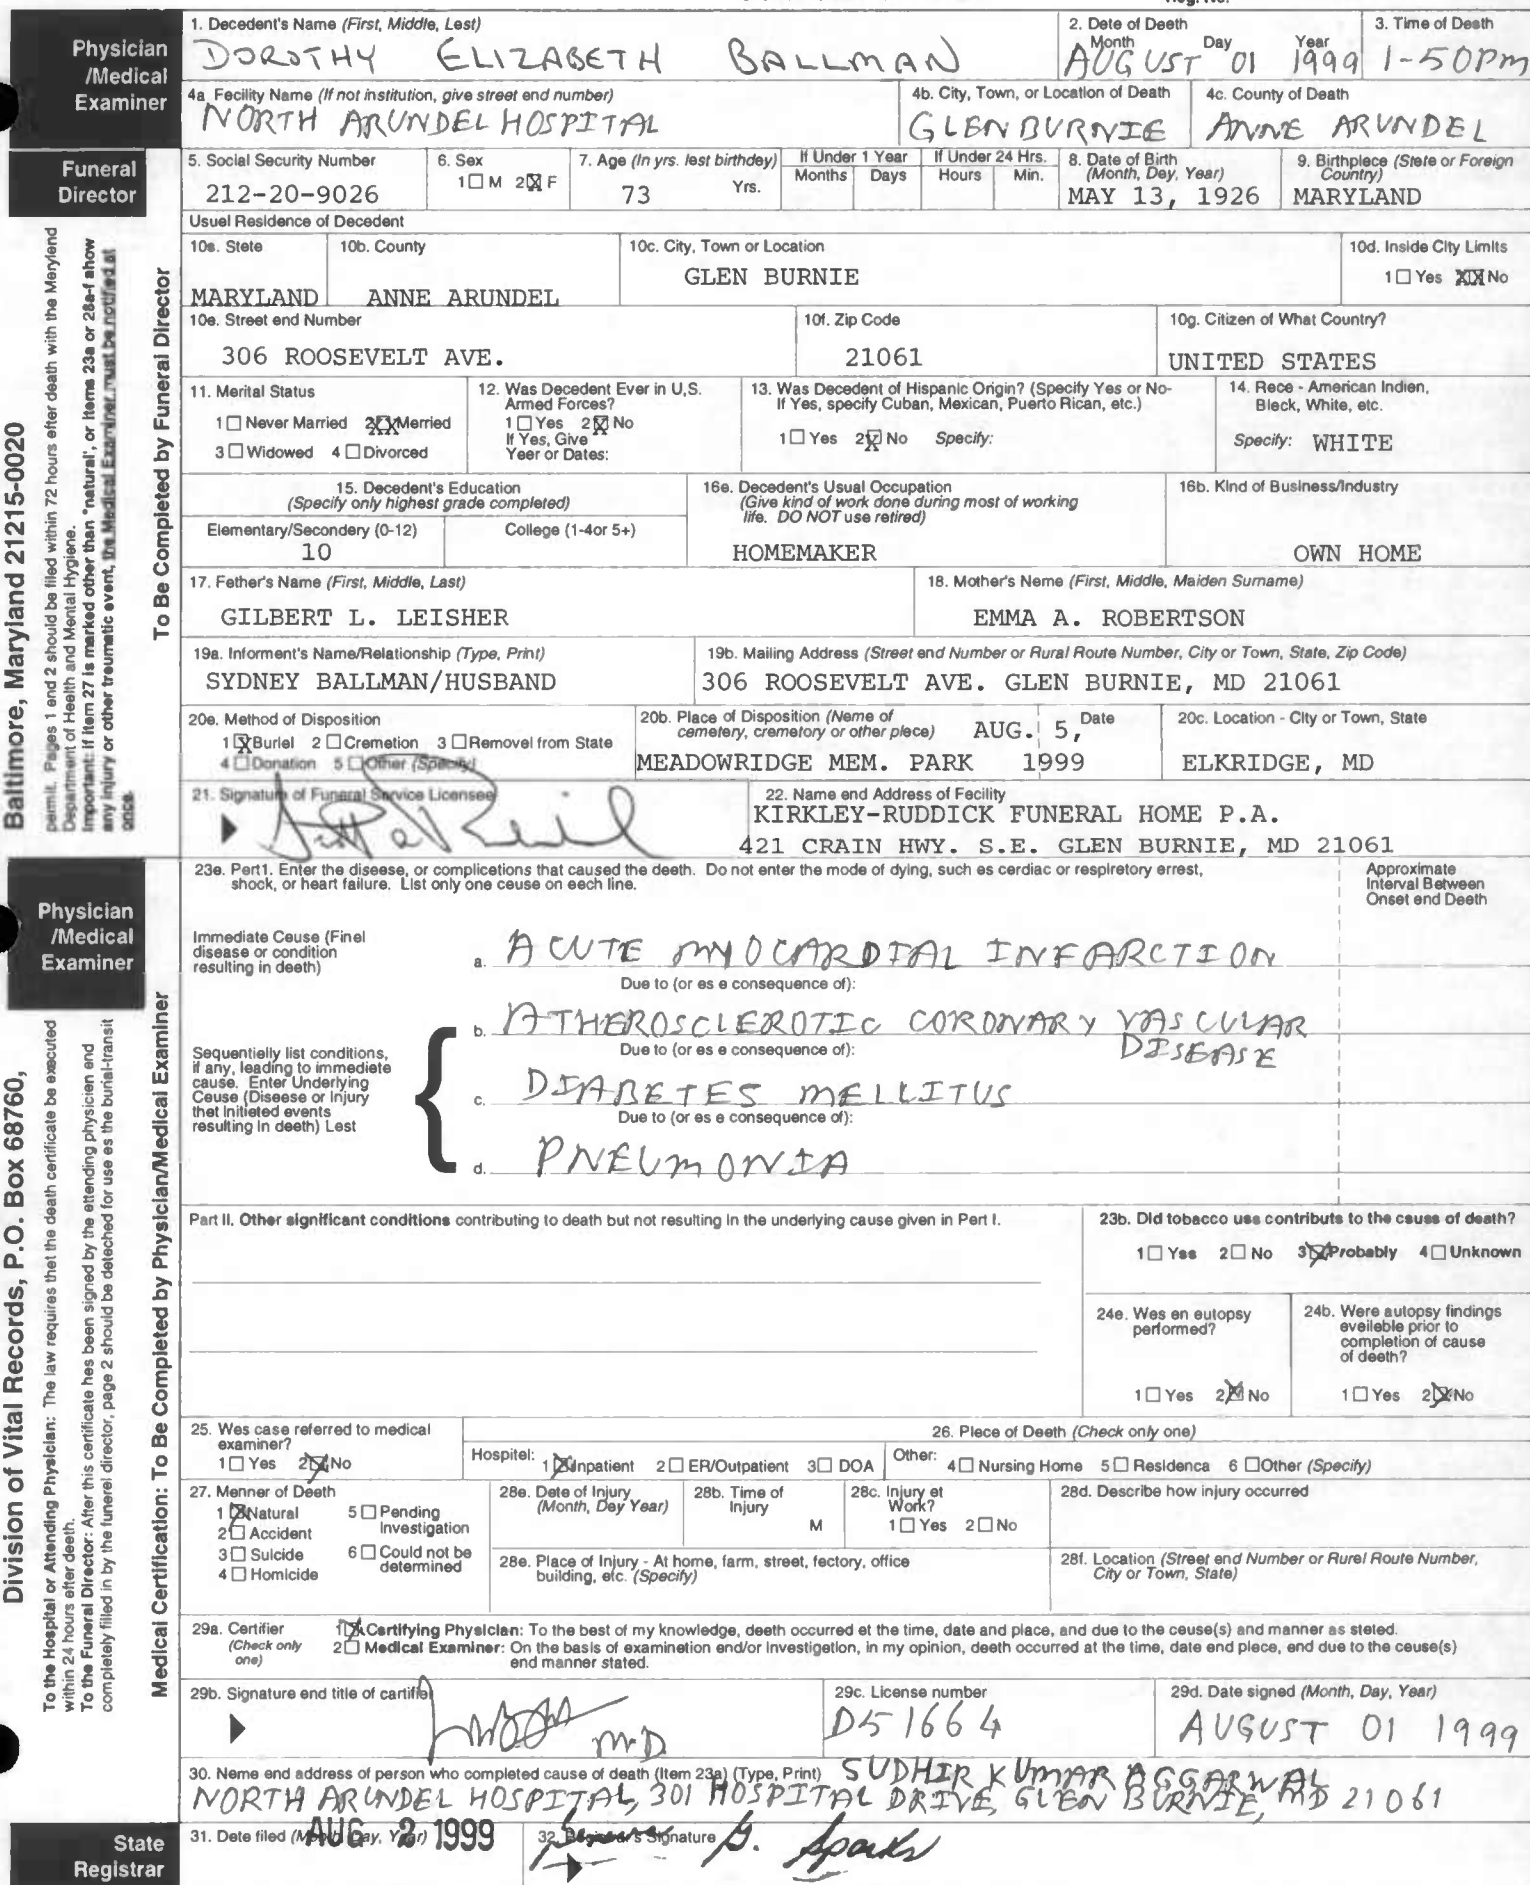 Physician
/Medical
Examiner
1. Decedent's Name (First, Middle, Lest)
DOROTHY ELIZABETH BALLMAN
2. Dete of Deeth
Month Day Year
AUGUST 01 1999
3. Time of Death
1-50PM
4a. Fecility Name (If not institution, give street end number)
NORTH ARUNDEL HOSPITAL
4b. City, Town, or Location of Death
GLEN BURNIE
4c. County of Death
ANNE ARUNDEL
Funeral
Director
5. Social Security Number
212-20-9026
6. Sex
1☐ M 2☒ F
7. Age (In yrs. lest birthdey)
73 Yrs.
If Under 1 Year
Months Days
If Under 24 Hrs.
Hours Min.
8. Date of Birth
(Month, Dey, Year)
MAY 13, 1926
9. Birthplece (Stete or Foreign
Country)
MARYLAND
Usuel Residence of Decedent
10s. Stete
MARYLAND
10b. County
ANNE ARUNDEL
10c. City, Town or Location
GLEN BURNIE
10d. Inside City Limits
1☐ Yes ☒ No
10e. Street end Number
306 ROOSEVELT AVE.
10f. Zip Code
21061
10g. Citizen of What Country?
UNITED STATES
11. Meritel Status
1☐ Never Married 2☒ Merried
3☐ Widowed 4☐ Divorced
12. Was Decedent Ever in U,S.
Armed Forces?
1☐ Yes 2☒ No
If Yes, Give
Yeer or Dates:
13. Was Decedent of Hispanic Origin? (Specify Yes or No-
If Yes, specify Cuban, Mexican, Puerto Rican, etc.)
1☐ Yes 2☒ No Specify:
14. Rece - American Indien,
Bleck, White, etc.
Specify: WHITE
15. Decedent's Education
(Specify only highest grade completed)
Elementary/Secondery (0-12)
10
College (1-4or 5+)
16e. Decedent's Usual Occupation
(Give kind of work done during most of working
life. DO NOT use retired)
HOMEMAKER
16b. Kind of Business/Industry
OWN HOME
17. Father's Name (First, Middle, Last)
GILBERT L. LEISHER
18. Mother's Neme (First, Middle, Maiden Surname)
EMMA A. ROBERTSON
19a. Informent's Name/Relationship (Type, Print)
SYDNEY BALLMAN/HUSBAND
19b. Mailing Address (Street end Number or Rural Route Number, City or Town, State, Zip Code)
306 ROOSEVELT AVE. GLEN BURNIE, MD 21061
20e. Method of Disposition
1☒ Buriel 2☐ Cremetion 3☐ Removel from State
4☐ Donation 5☐ Other (Specify)
20b. Place of Disposition (Neme of
cemetery, cremetory or other plece)
MEADOWRIDGE MEM. PARK
Date
AUG. 5,
1999
20c. Location - City or Town, State
ELKRIDGE, MD
21. Signature of Funeral Service Licensee
22. Name end Address of Fecility
KIRKLEY-RUDDICK FUNERAL HOME P.A.
421 CRAIN HWY. S.E. GLEN BURNIE, MD 21061
To Be Completed by Funeral Director
permit. Pages 1 end 2 should be filed within 72 hours efter death with the Merylend
Department of Heelth and Mentel Hygiene.
Important: If item 27 is marked other than "natural', or items 23a or 28a-f show
any injury or other treumetic event, the Medical Examiner must be notified at
once.
Baltimore, Maryland 21215-0020
Physician
/Medical
Examiner
23e. Pert1. Enter the disease, or complications that caused the death. Do not enter the mode of dying, such es cerdiac or respiretory errest,
shock, or heart feilure. List only one ceuse on eech line.
Approximate
Intervel Between
Onset end Deeth
Immediate Ceuse (Finel
disease or condition
resulting in deeth)
a. ACUTE MYOCARDIAL INFARCTION
Due to (or es e consequence of):
Sequentielly list conditions,
if any, leading to immediete
cause. Enter Underlying
Ceuse (Diseese or Injury
thet initieted events
resulting in deeth) Lest
b. ATHEROSCLEROTIC CORONARY VASCULAR
DISEASE
Due to (or es e consequence of):
c. DIABETES MELLITUS
Due to (or es e consequence of):
d. PNEUMONIA
Part II. Other significant conditions contributing to death but not resulting in the underlying cause given in Pert I.
23b. Did tobacco use contributs to the causs of death?
1☐ Yss 2☐ No 3☒ Probably 4☐ Unknown
24e. Wes en eutopsy
performed?
1☐ Yes 2☒ No
24b. Were autopsy findings
eveileble prior to
completion of cause
of deeth?
1☐ Yes 2☒ No
25. Wes case referred to medical
exeminer?
1☐ Yes 2☒ No
26. Plece of Deeth (Check only one)
Hospitel: 1☒ Inpatient 2☐ ER/Outpatient 3☐ DOA
Other: 4☐ Nursing Home 5☐ Residenca 6☐ Other (Specify)
27. Menner of Deeth
1☒ Natural
2☐ Accident
3☐ Suicide
4☐ Homicide
5☐ Pending
Investigation
6☐ Could not be
detemined
28e. Dete of Injury
(Month, Dey Year)
28b. Time of
Injury
M
28c. Injury et
Work?
1☐ Yes 2☐ No
28d. Describe how injury occurred
28e. Place of Injury - At home, farm, street, fectory, office
building, etc. (Specify)
28f. Location (Street end Number or Rurel Route Number,
City or Town, State)
29a. Certifier
(Check only
one)
1☒ Certifying Physician: To the best of my knowledge, deeth occurred et the time, date and place, and due to the ceuse(s) and manner as steted.
2☐ Medical Examiner: On the basis of examinetion end/or Investigetion, in my opinion, deeth occurred at the time, date end plece, end due to the ceuse(s)
end manner stated.
29b. Signature end title of certifier
MD
29c. License number
D51664
29d. Date signed (Month, Day, Year)
AUGUST 01 1999
30. Neme end address of person who completed cause of death (Item 23a) (Type, Print)
SUDHIR KUMAR AGGARWAL
NORTH ARUNDEL HOSPITAL, 301 HOSPITAL DRIVE, GLEN BURNIE, MD 21061
Medical Certification: To Be Completed by Physician/Medical Examiner
To the Hospital or Attending Physician: The law requires thet the death certificate be executed
within 24 hours efter deeth.
To the Funeral Director: After this certificate hes been signed by the ettending physicien end
completely filled in by the funerel director, page 2 should be deteched for use es the burial-transit
Division of Vital Records, P.O. Box 68760,
State
Registrar
31. Date filed (Month, Day, Year)
AUG 2 1999
32. Registrar's Signature
G. Sparks